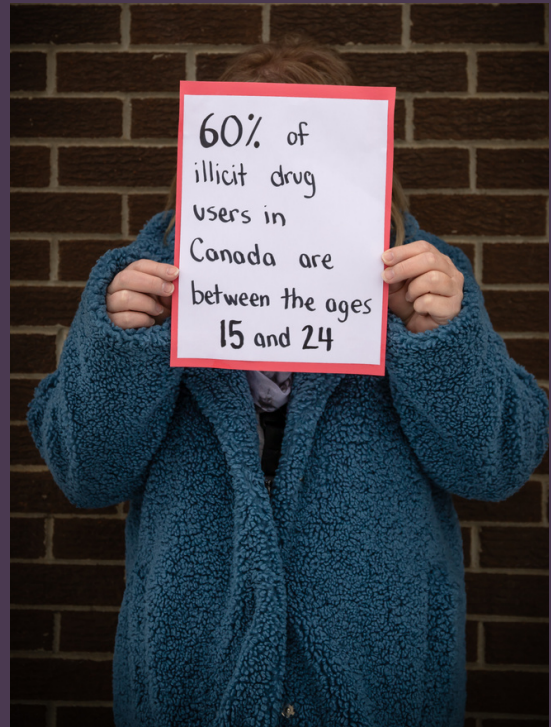 60% of
illicit drug
users in
Canada are
between the ages
15 and 24